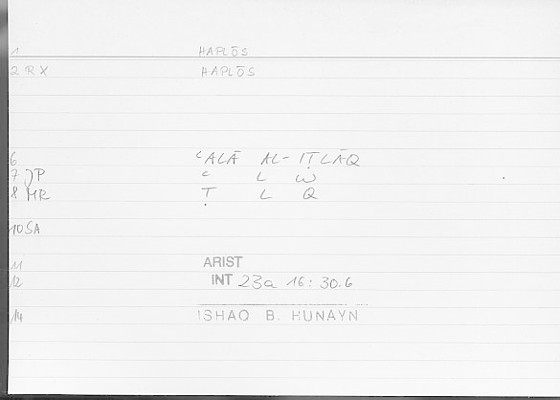 1 HAPLŌS
2 RX HAPLŌS
6 ʿALĀ AL-IṬLĀQ
7 JP ʿ L W
8 MR Ṭ L Q
10 SA
11 ARIST
12 INT 23a 16: 30.6
14 ISHAQ B. HUNAYN